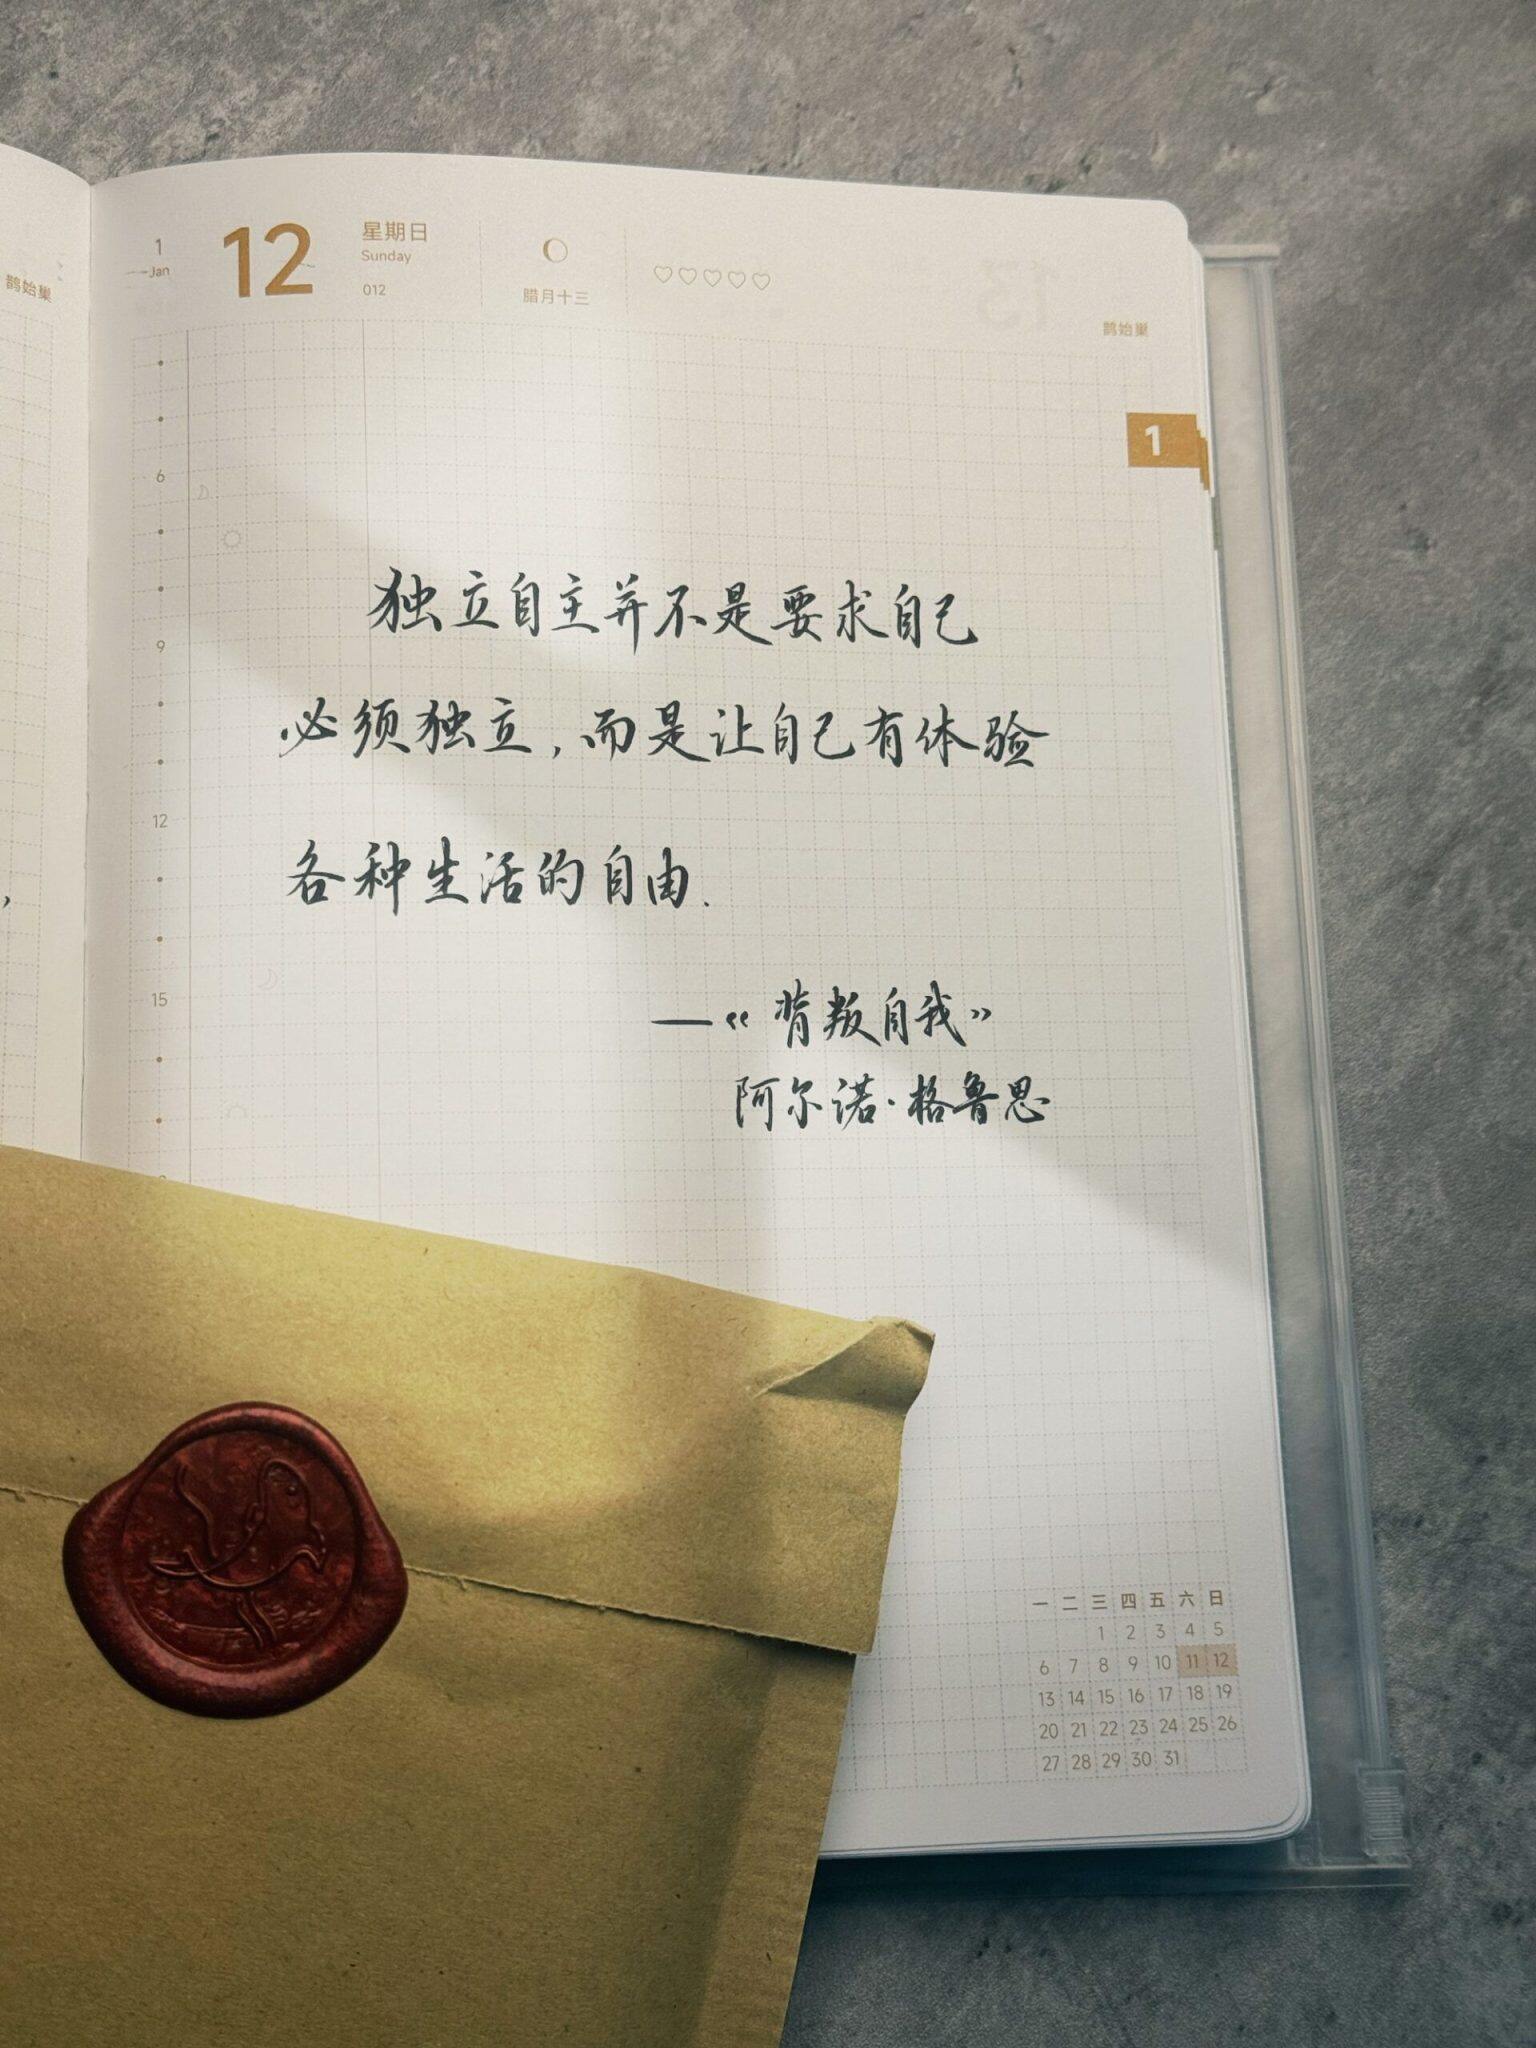 鹊始巢
1
Jan
12
星期日
Sunday
012
腊月十三
鹊始巢
1
6
9
12
15
独立自主并不是要求自己
必须独立,而是让自己有体验
各种生活的自由.
—《背叛自我》
阿尔诺·格鲁思
一 二 三 四 五 六 日
1 2 3 4 5
6 7 8 9 10 11 12
13 14 15 16 17 18 19
20 21 22 23 24 25 26
27 28 29 30 31